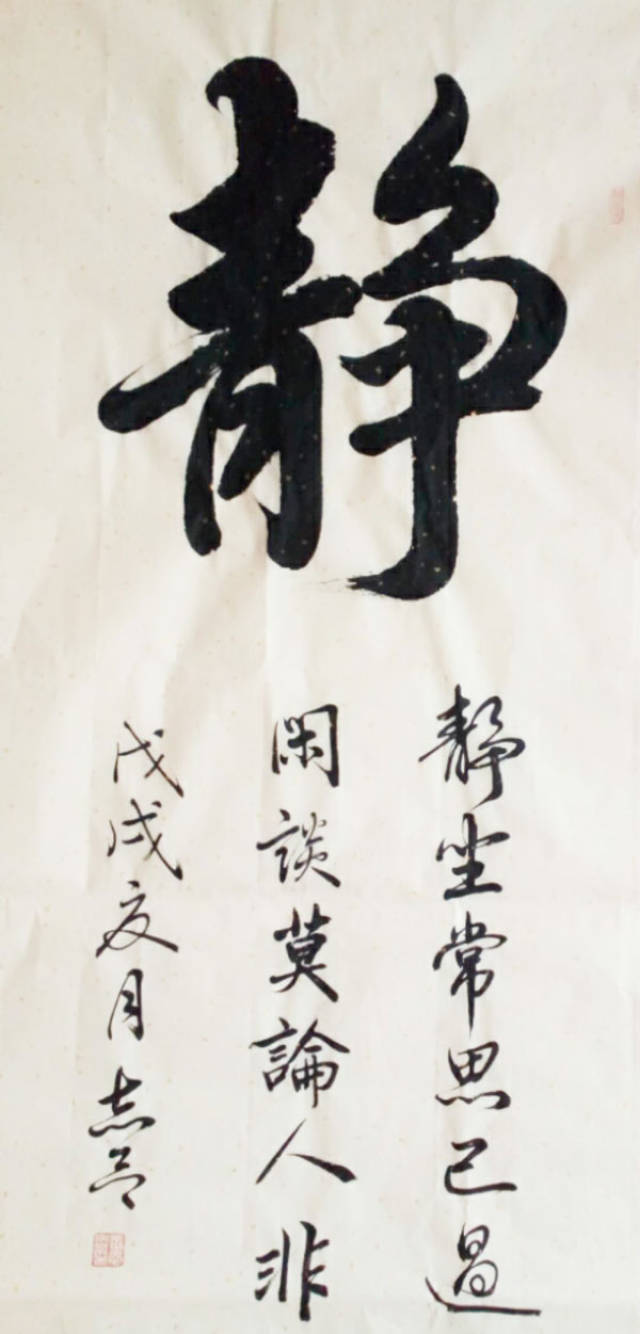 静
靜坐常思己過
閑談莫論人非
戊戌夏月志